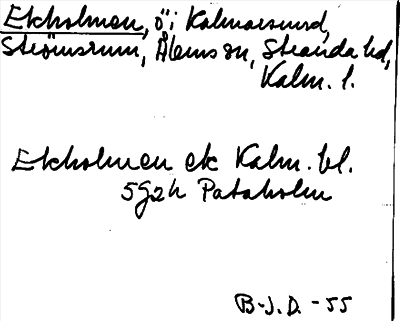 Ekholmen, ö i Kalmarsund,
Strömsrum, Ålems sn, Stranda hd,
Kalm. l.
Ekholmen ek Kalm. bl.
5G2h Pataholm
B.J.D. - 55